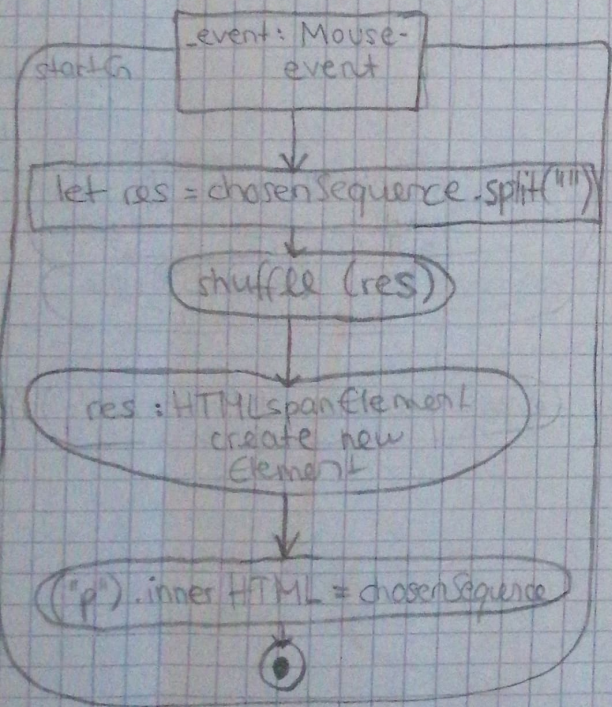 _event: Mouse-
event
startG
let res = chosenSequence.split("")
shuffle (res)
res : HTMLspanElement
create new
Element
("p").innerHTML = chosenSequence